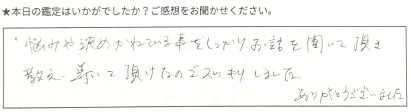 ★本日の鑑定はいかがでしたか？ご感想をお聞かせください。
悩みや決めかねている事をしっかりお話を聞いて頂き
教え導いて頂けたのでスッキリしました
ありがとうございました